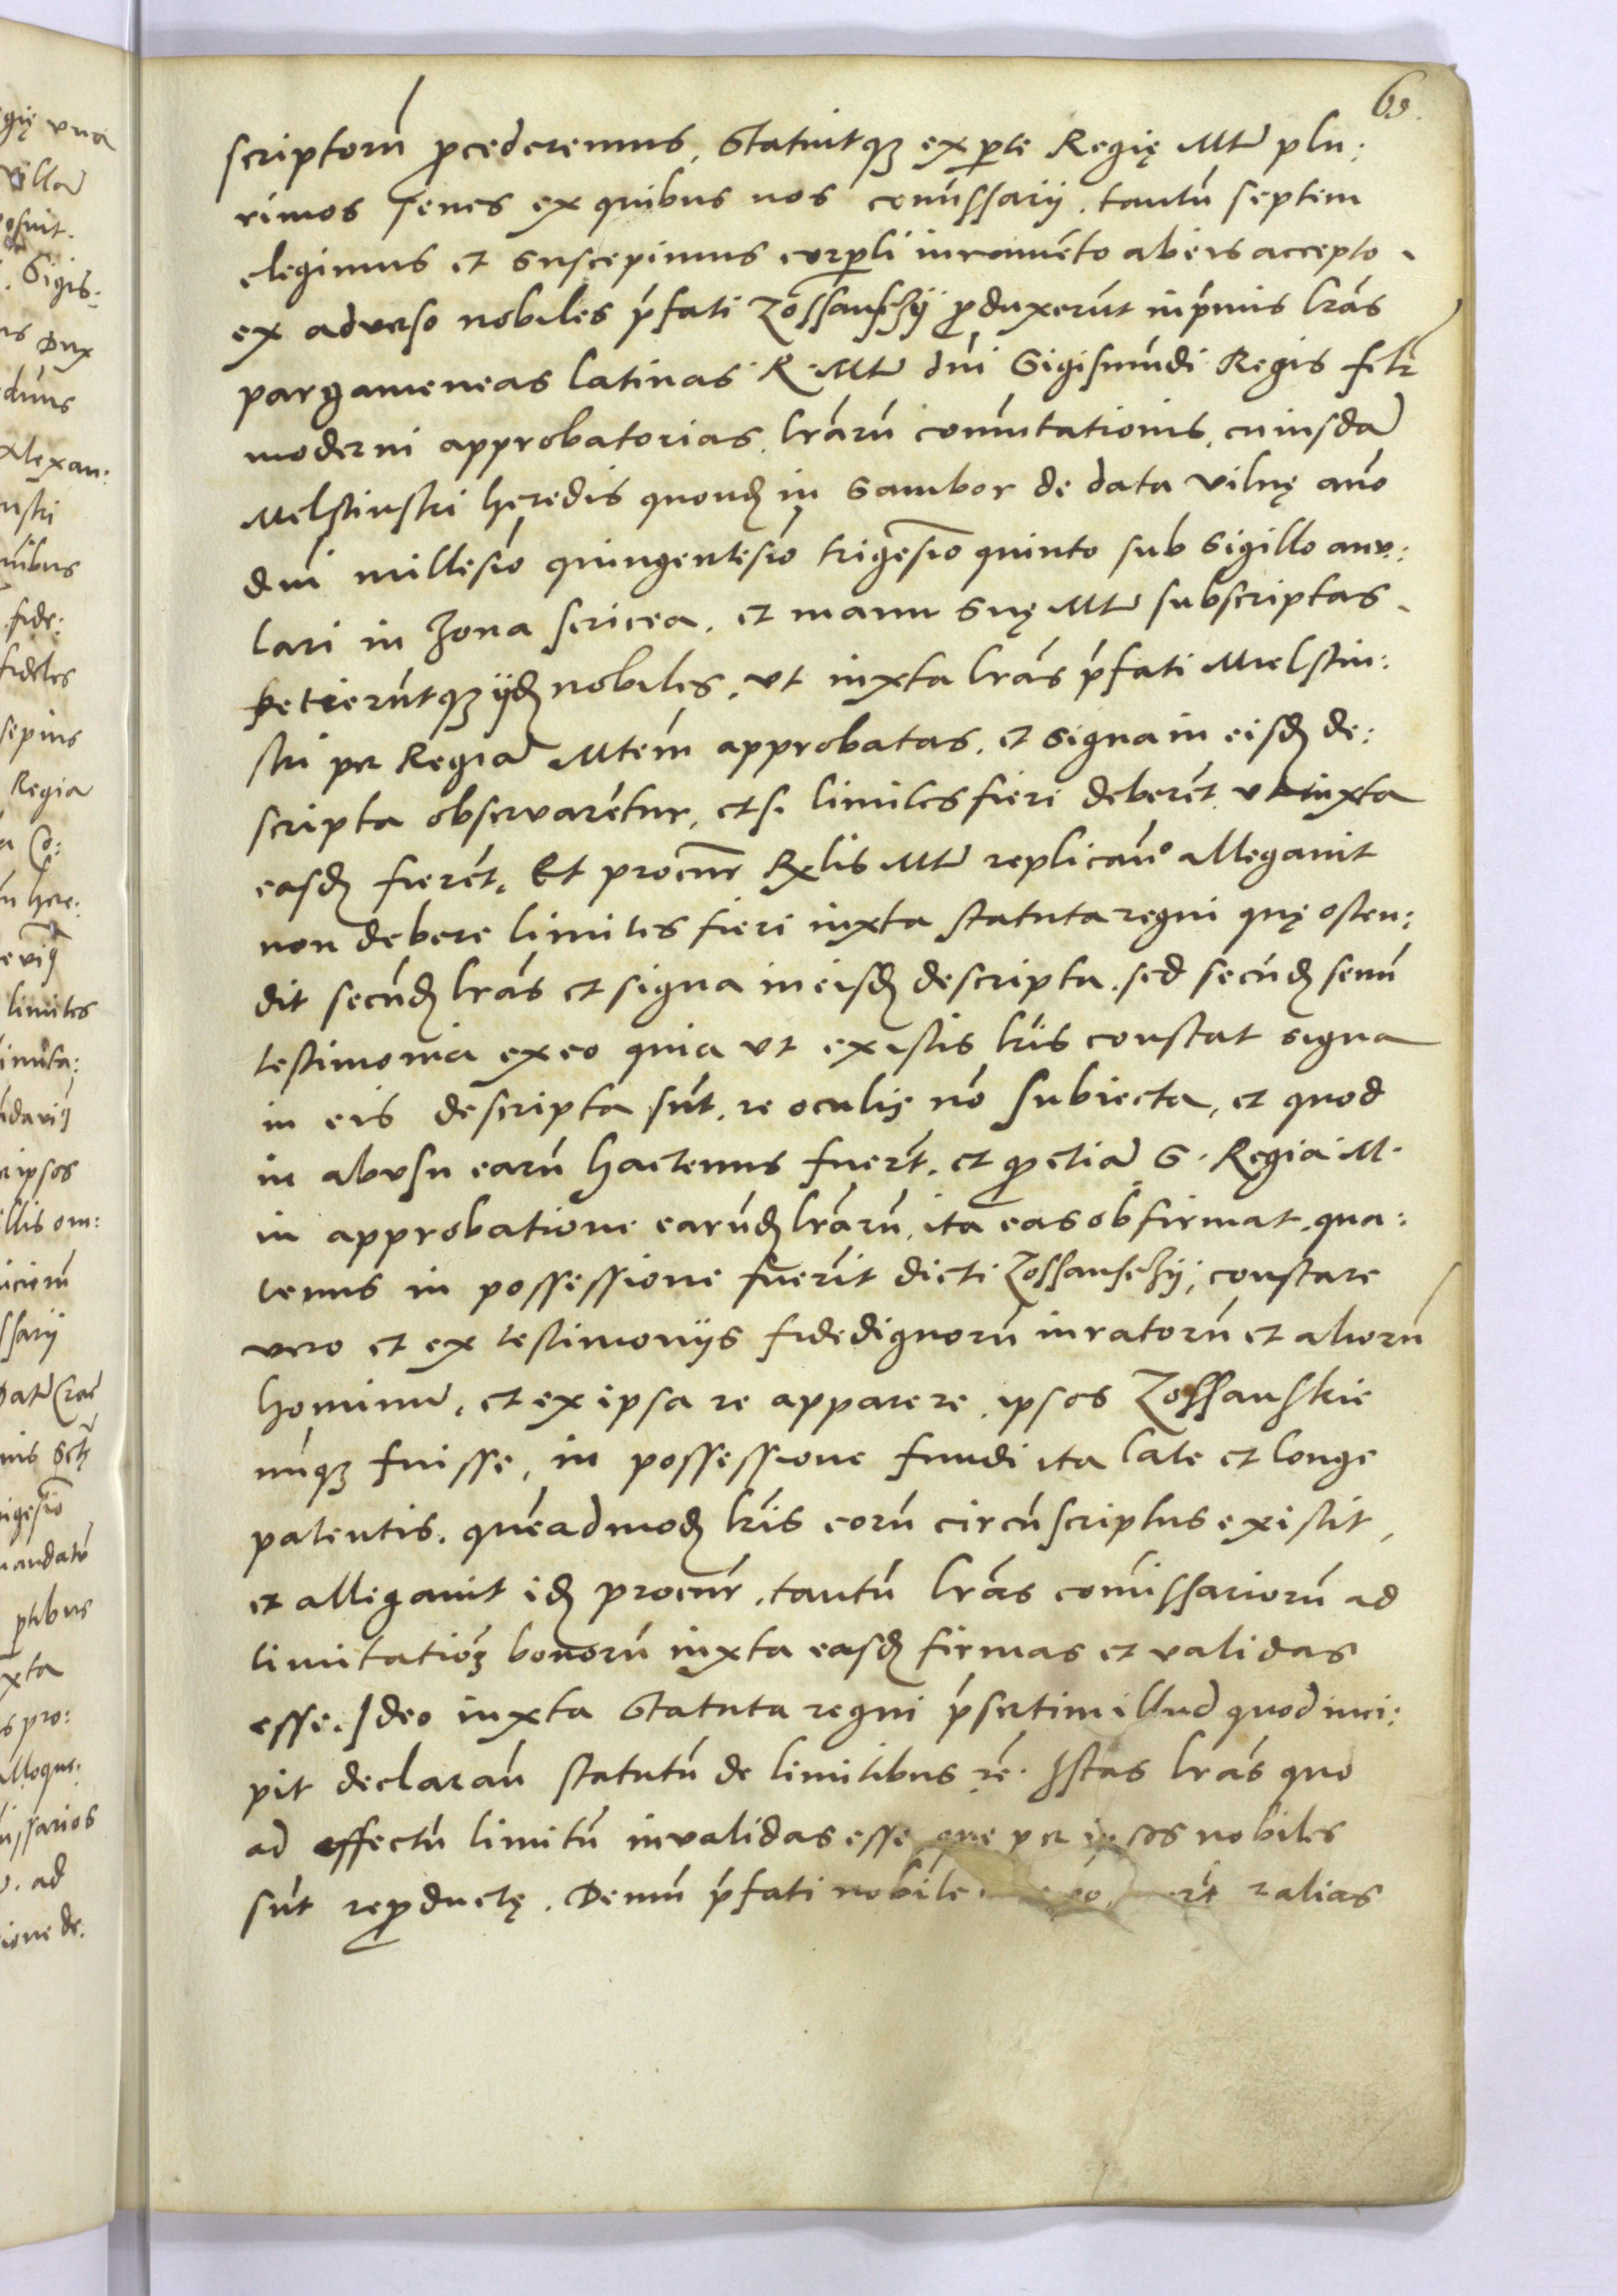 69.
scriptorū ꝓcederemus, Statuitqꝫ ex ꝑte Regię Mtis plu:
rimos senes ex quibus nos comissarij, tantū septem
elegimus et suscepimus corꝑli iuramēto ab eis accepto.
ex adverso nobiles p̄fati Zossanszhij ꝓduxerūt inp̄mis lrās
pargameneas latinas R. Mtis dn̄i Sigismūdi Regis
moderni approbatorias, lrārū comutationis, cuiusdā
Melstinski hęredis quondā in Sambor de data Vilnę an̄o
dn̄i millesio quingentesio trigesio quinto sub sigillo anu:
lari in zona sericea, et manu suę Mtis subscriptas.
petierūtqꝫ ijdē nobiles, ut iuxta lrās p̄fati Mielstin:
ski per Regiā Mtem approbatas, et signa in eisdē de:
scripta observarētur, et si limites fieri deberēt ut iuxta
easdē fierēt. Et procūr Rglis Mtis replican̄o allegavit
non debere limites fieri iuxta statuta regni quę osten:
dit secūdū lrās et signa in eisdē descripta. sed secūdū senū
testimonia ex eo quia ut ex istis lris constat signa
in eis descripta sūt, re oculis nō subiecta, et quod
in abusu earū hactenus fuerūt, et ꝙ etiā S. Regia M.
in approbatione earūdē lrārū, ita eas obfirmat, qua:
tenus in possessione fuerīt dicti Zossanschij, constare
vero et ex testimonijs fide dignorū iuratorū et aliorū
hominū, et ex ipsa re apparere, ipsos Zossanskie
nūqꝫ fuisse, in possessione fundi ita late et longe
patentis, quēadmodū lris eorū circūscriptus existit,
et allegavit idē procūr, tantū lrās comissariorū ad
limitationē bonorū iuxta easdē firmas et validas
esse. Ideo iuxta Statuta regni p̄sertim illud quod inci:
pit declaran̄ statutū de limitibus rē. Istas lrās quo
ad effectū limitū invalidas esse, que per ipsos nobiles
sūt reꝓductę. Demū p̄fati nobiles alias